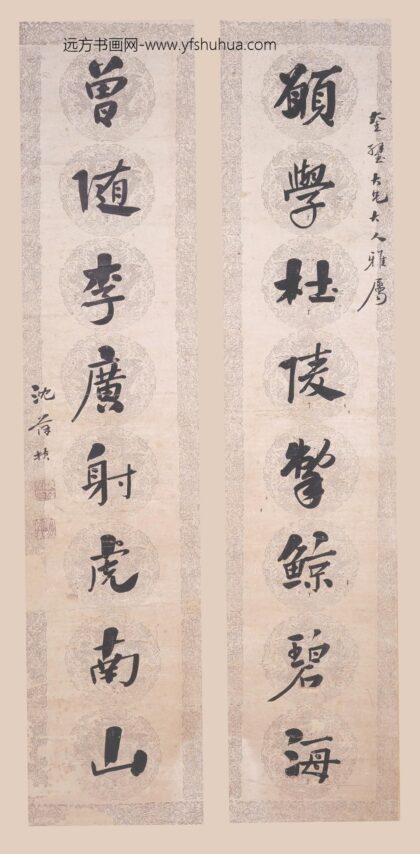 远方书画网-www.yfshuhua.com
大兄大人雅屬
願學杜陵掣鯨碧海
曾随李廣射虎南山
沈葆楨